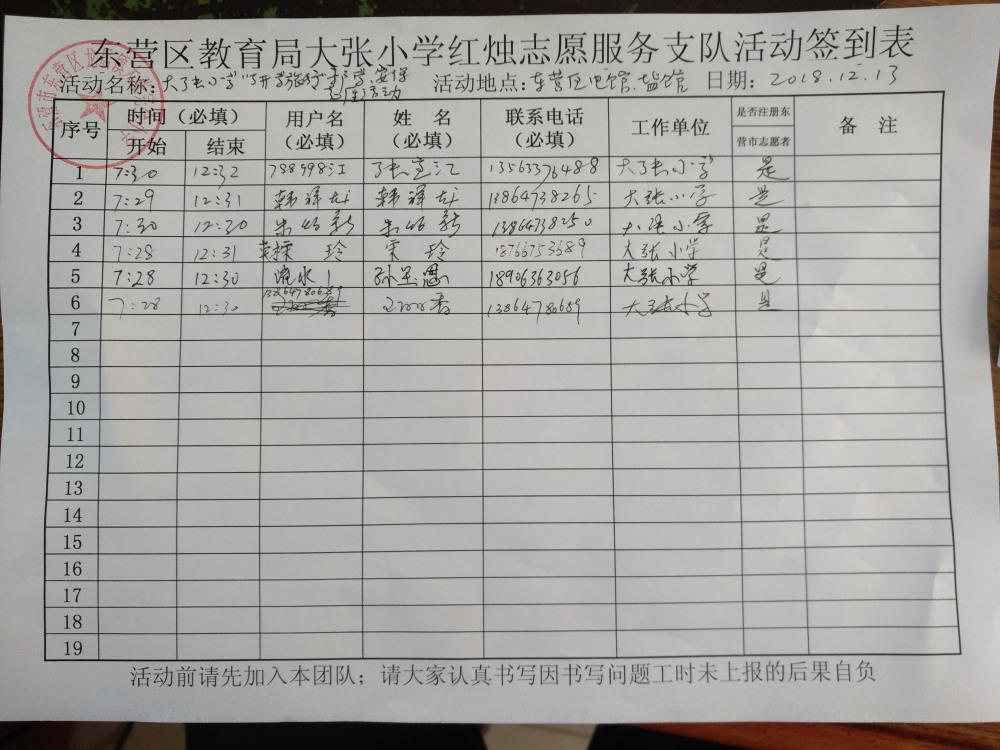 东营区教育局大张小学红烛志愿服务支队活动签到表
活动名称: 大张小学 活动地点: 东营区 馆、盐馆 日期: 2018.12.13
序号 时间（必填） 用户名（必填） 姓 名（必填） 联系电话（必填） 工作单位 是否注册东营市志愿者 备 注
开始 结束
1 7:30 12:32 788998江 张 江 13563376488 大张小学 是
2 7:29 12:31 韩 韩 13864738265 大张小学 是
3 7:30 12:30 朱 朱 13864738250 大张小学 是
4 7:28 12:31 玲 玲 18766753689 大张小学 是
5 7:28 12:30 流水1 孙 18906363056 大张小学 是
6 7:28 12:30 13864780689 王 香 13864780689 大张小学 是
7
8
9
10
11
12
13
14
15
16
17
18
19
活动前请先加入本团队；请大家认真书写因书写问题工时未上报的后果自负